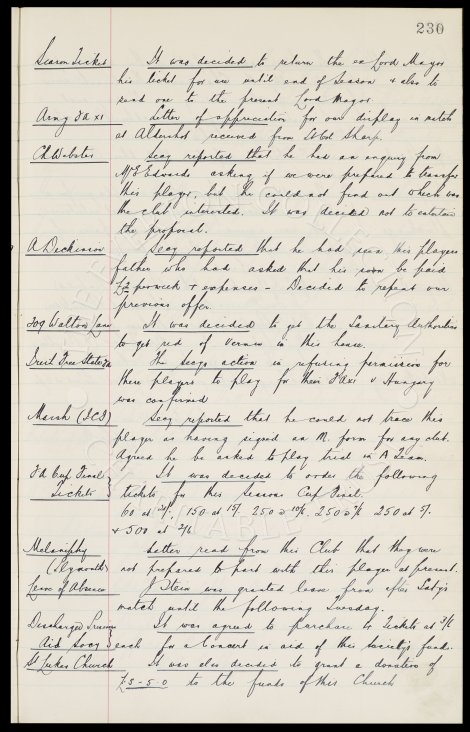 230
Season Ticket It was decided to return the ex Lord Mayor
his ticket for use until end of Season & also to
send one to the present Lord Mayor
Army Fd XI Letter of appreciation for our display in match
at Aldershot received from Lt Col Sharp.
C H Webster Secy reported that he had an enquiry from
Mr E Edwards asking if we were prepared to transfer
this player, but he could not find out which was
the club interested. It was decided not to entertain
the proposal.
A Dickinson Secy reported that he had seen this players
father who had asked that his son be paid
£2 per week & expenses - Decided to repeat our
previous offer.
309 Walton Lane It was decided to get the Sanitary Authorities
to get rid of Vermin in this house.
Irish Free State Fa The Secys action in refusing permission for
these players to play for their Fd XI v Hungary
was confirmed
Marsh (I.C.I) Secy reported that he could not trace this
player as having signed an M. form for any club.
Agreed he be asked to play trial in A Team.
Fd Cup Final It was decided to order the following
Tickets tickets for this seasons Cup Final.
60 at 21/-, 150 at 15/- 250 @ 10/6 250 @ 7/6 250 at 5/-
& 500 at 2/6
Melaniphy Letter read from this Club that they were
(Plymouth) not prepared to part with this player at present.
Leave of Absence J Stein was granted leave from after Satys
match until the following Tuesday.
Discharged Prisoners It was agreed to purchase Tickets at 3/6
Aid Socy each for a Concert in aid of this society's funds.
St Lukes Church It was also decided to grant a donation of
£5-5-0 to the funds of this Church